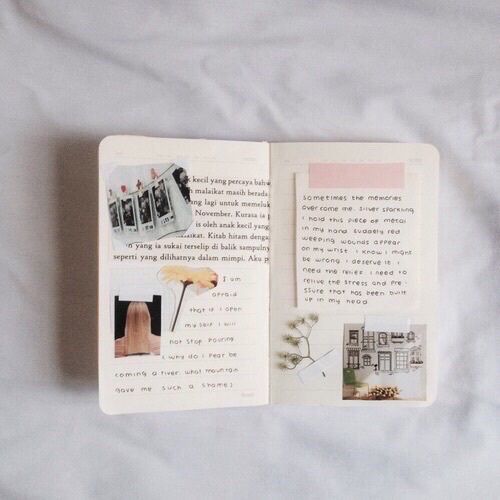 k kecil yang percaya bahw
h malaikat masih berada
yang lagi untuk memeluk
November. Kurasa ia p
is oleh anak kecil yang
akukan. Kitab hitam dengan
n yang ia sukai terselip di balik sampulny
seperti yang dilihatnya dalam mimpi. Aku p
I am
afraid
that if I open
my self I will
not stop pouring.
( why do I fear be
coming a river. what mountain
gave me such a shame )
sometimes the memories
over come me. silver sparkling
I hold this piece of metal
in my hand. suddenly red
weeping wounds appear
on my wrist. I know I might
be wrong. I deserve it. I
need the relief. I need to
relive the stress and pre-
ssure that has been built
up in my head